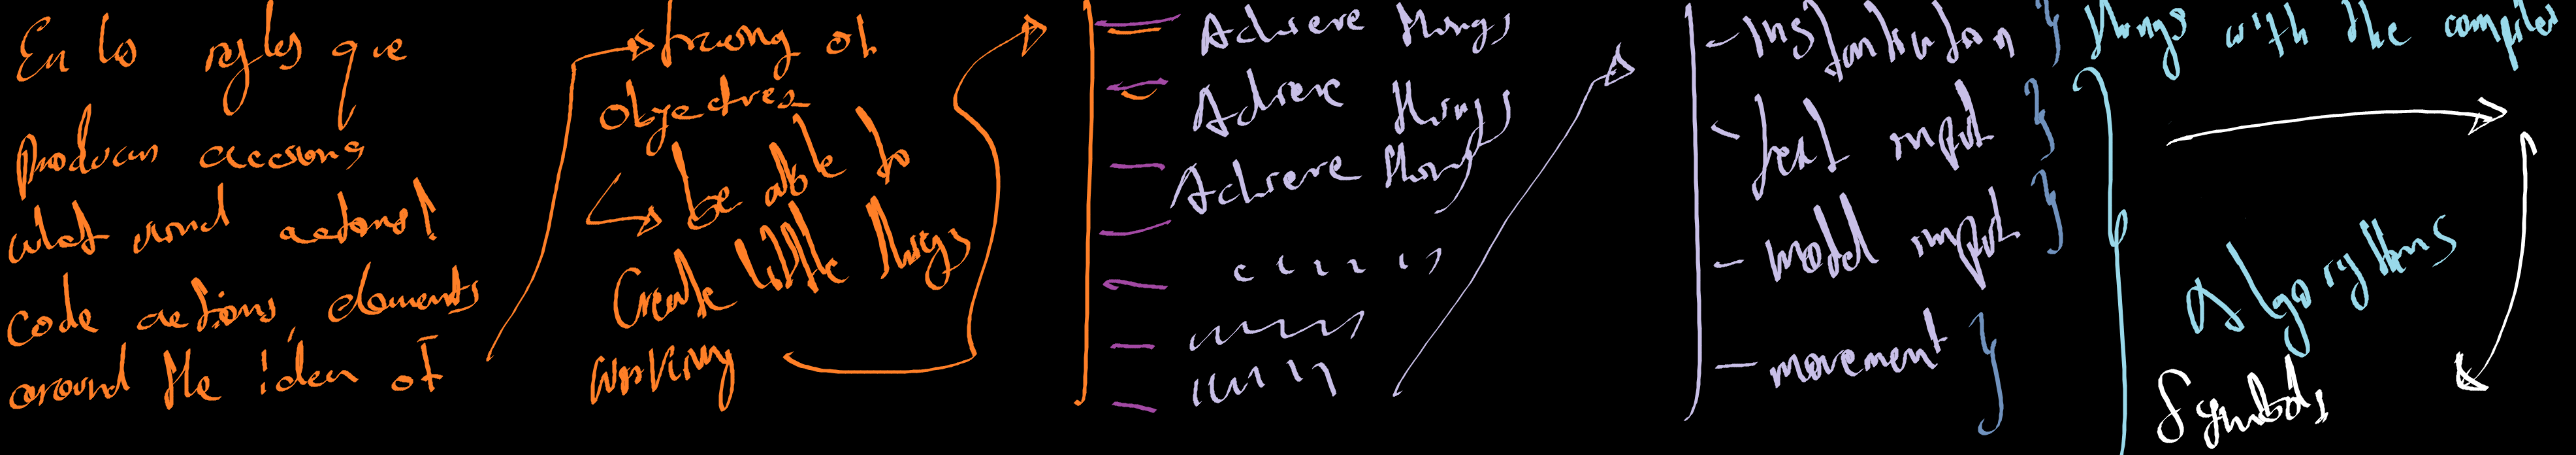 En las reglas que
Producen acciong
what kind actions!
code actions, elements
around the idea of
strucng of
objectives
be able to
Create little things
working
Achieve things
Achieve things
Achieve things
- Instantiation }
- text input }
- model input }
- movement }
things with the compiler
Algorythms
Symbols